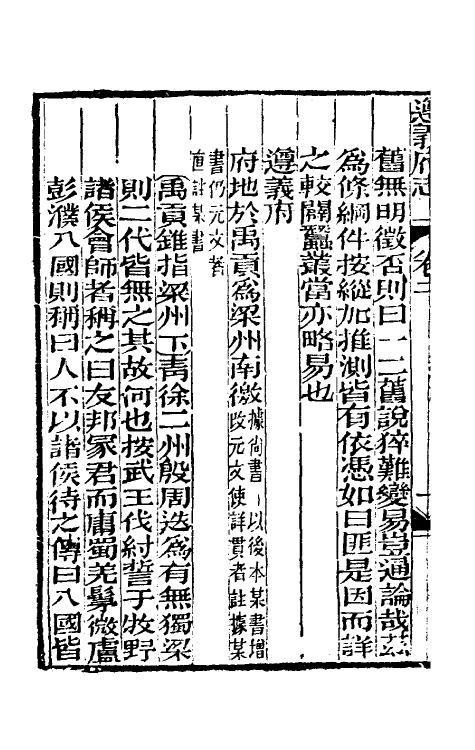 遵義府志　卷二　一
舊無明徵否則曰一二舊說猝難變易豈通論哉茲
為條綱件按縱加推測皆有依憑如曰匪是因而詳
之較闢蠶叢當亦略易也
遵義府
府地於禹貢為梁州南徼據尚書○以後本某書增
改元文使詳貫者註據某
書仍元文者
直註某書
禹貢錐指梁州下青徐二州殷周迭為有無獨梁
則二代皆無之其故何也按武王伐紂誓于牧野
諸侯會師者稱之曰友邦冢君而庸蜀羌髳微盧
彭濮八國則稱曰人不以諸侯待之傳曰八國皆